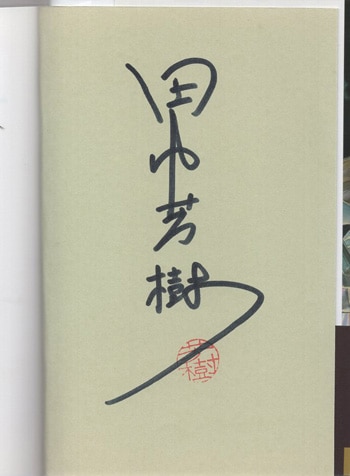 田中芳樹
芳樹